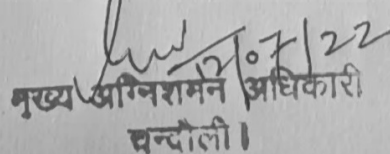 12/07/22
मुख्य अग्निशमन अधिकारी
चन्दौली।